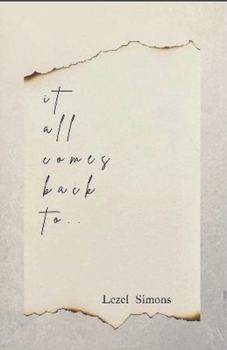 it
all
comes
back
to..
Lezel Simons